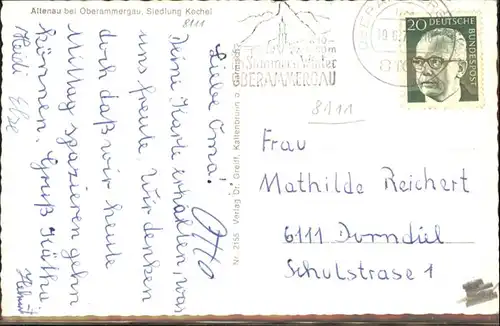 Altenau bei Oberammergau. Siedlung Kochel
8111
Liebe Oma!
Deine Karte erhalten, was
uns freute. Wir denken
doch daß wir heute
Mittag spazieren gehn
können. Gruß Käthe
Heidi Else
Helmut
Otto
Nr. 2155 Verlag Dr. Greiff, Kaltenbrunn b. Garmisch
Sommer u. Winter
OBERAMMERGAU
20
DEUTSCHE
BUNDESPOST
8111
Frau
Mathilde Reichert
6111 Dorndiel
Schulstrase 1